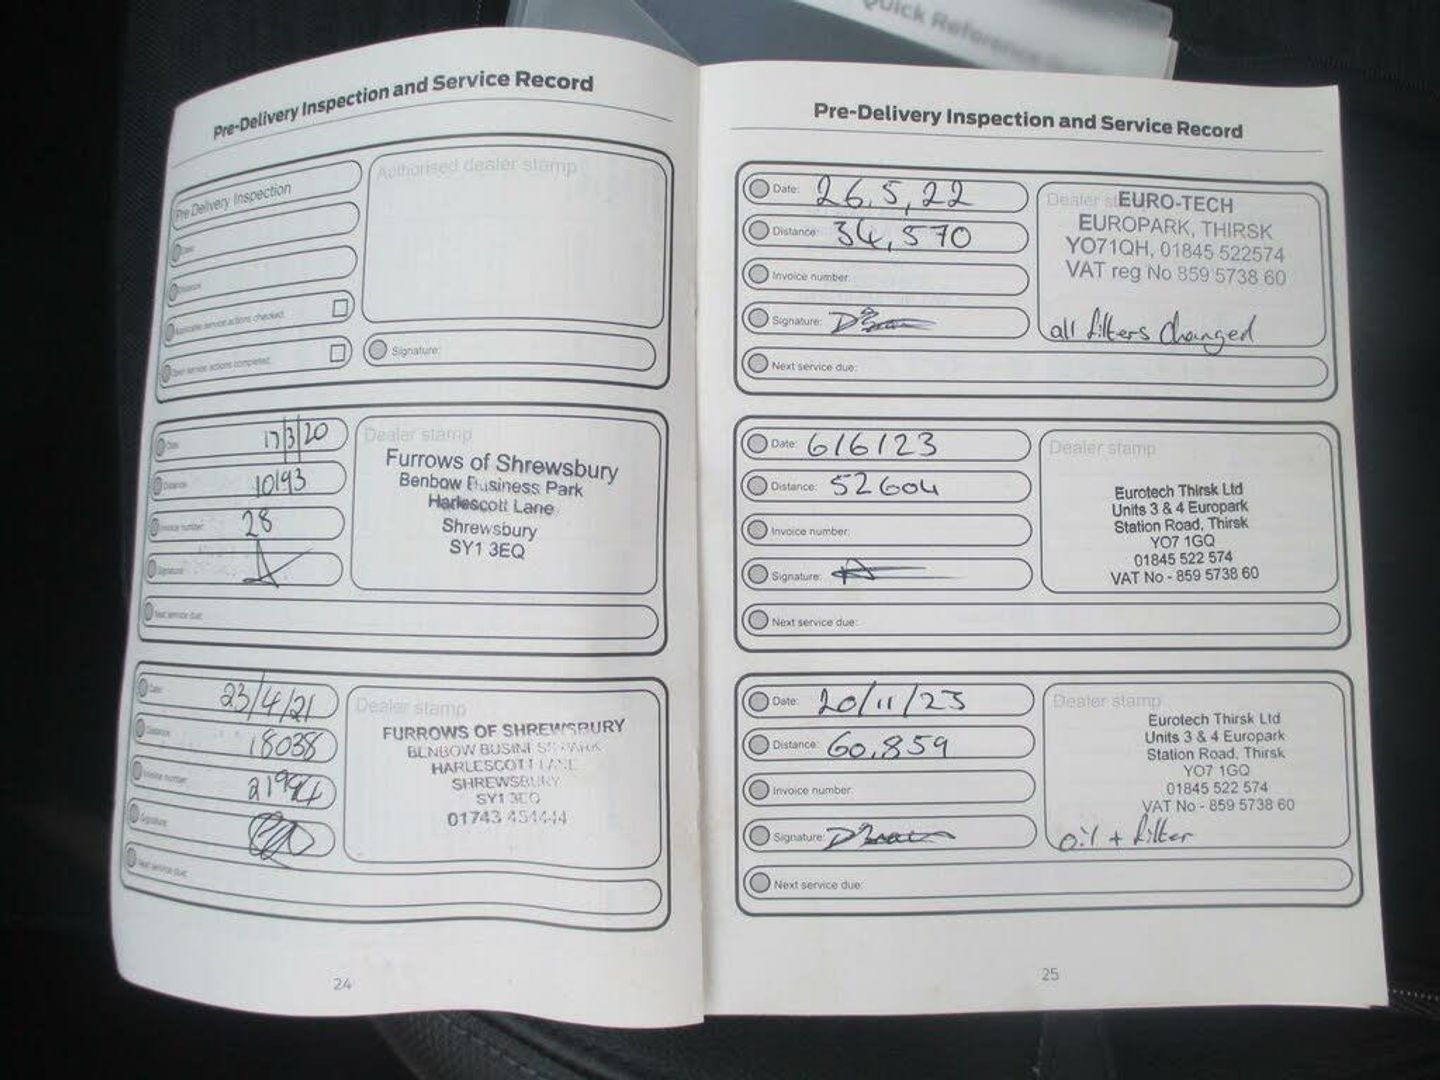 Quick Reference
Pre-Delivery Inspection and Service Record
Pre Delivery Inspection
Date:
Distance:
Applicable service actions checked:
Open service actions completed:
Authorised dealer stamp
Signature:
Date: 17/3/20
Distance: 10193
Invoice number: 28
Signature:
Next service due:
Dealer stamp
Furrows of Shrewsbury
Benbow Business Park
Harlescott Lane
Shrewsbury
SY1 3EQ
Date: 23/4/21
Distance: 18038
Invoice number: 21994
Signature:
Next service due:
Dealer stamp
FURROWS OF SHREWSBURY
BENBOW BUSINESS PARK
HARLESCOTT LANE
SHREWSBURY
SY1 3EQ
01743 454444
24
Pre-Delivery Inspection and Service Record
Date: 26,5,22
Distance: 34,570
Invoice number:
Signature:
Next service due:
Dealer stamp
EURO-TECH
EUROPARK, THIRSK
YO71QH, 01845 522574
VAT reg No 859 5738 60
all filters changed
Date: 6/6/23
Distance: 52604
Invoice number:
Signature:
Next service due:
Dealer stamp
Eurotech Thirsk Ltd
Units 3 & 4 Europark
Station Road, Thirsk
YO7 1GQ
01845 522 574
VAT No - 859 5738 60
Date: 20/11/23
Distance: 60,859
Invoice number:
Signature:
Next service due:
Dealer stamp
Eurotech Thirsk Ltd
Units 3 & 4 Europark
Station Road, Thirsk
YO7 1GQ
01845 522 574
VAT No - 859 5738 60
oil + filter
25